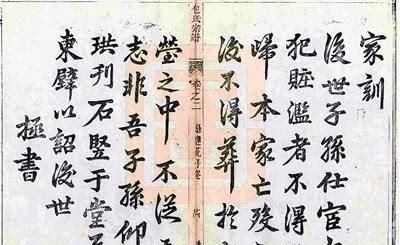 家訓
後世子孫仕宦
犯賍濫者不得
歸本家亡歿
後不得葬於
包氏宗譜
卷之二
塋之中不從
志非吾子孫仰
珙刊石竪于堂
東壁以詔後世
極書